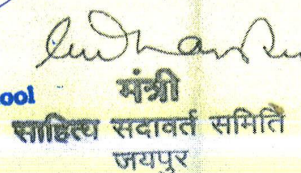 ool
मंत्री
साहित्य सदावर्त समिति
जयपुर